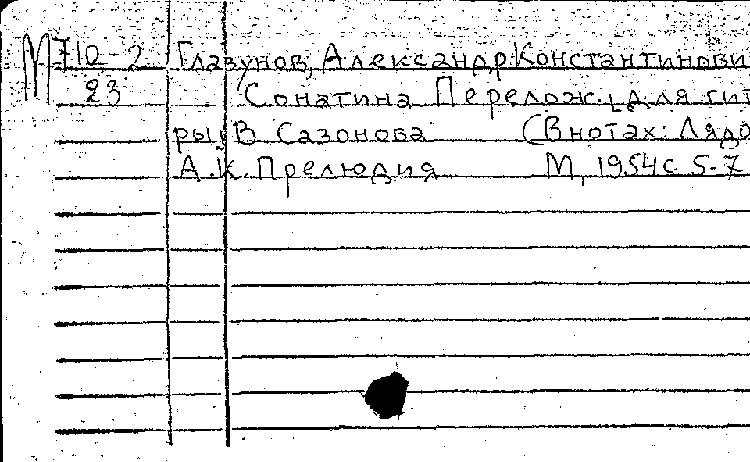 М710-2 Глазунов, Александр Константинови
23 Сонатина Перелож. для гит
ры В. Сазонова (В нотах: Лядо
А.К. Прелюдия М, 1954 с 5-7